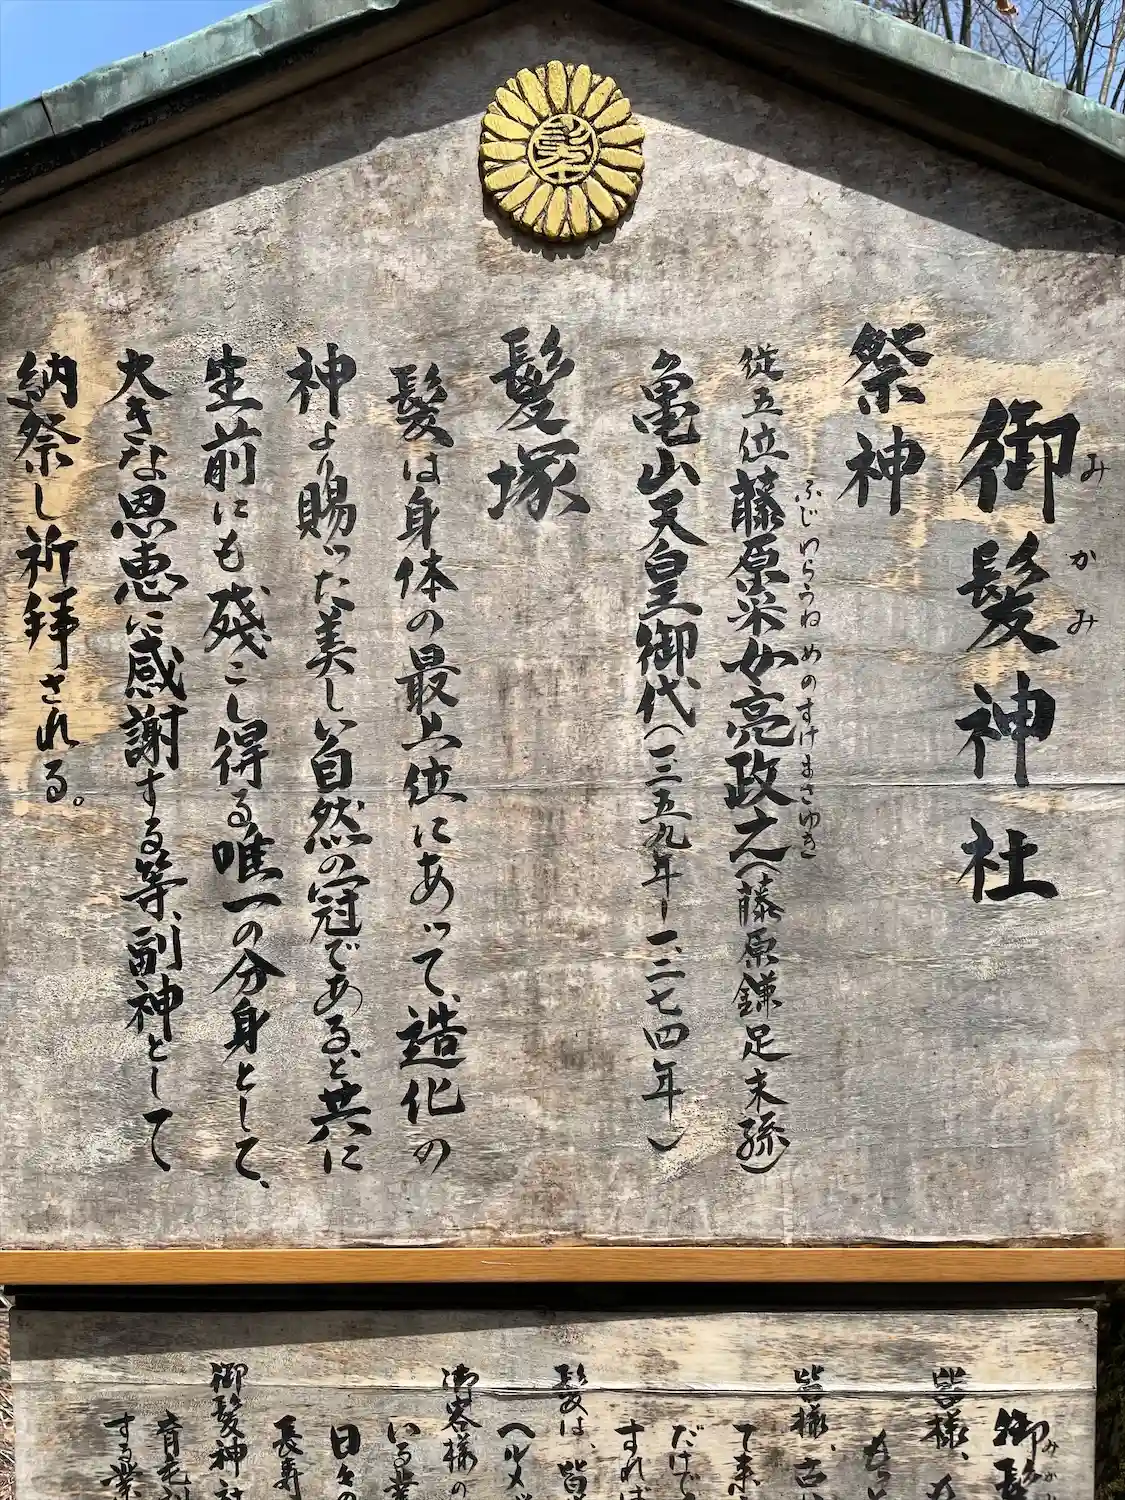 御髪神社
みかみ
祭神
従五位藤原采女亮政之(藤原鎌足末孫)
ふじわらうねめのすけまさゆき
亀山天皇御代(一二五九年ー一二七四年)
髪塚
髪は身体の最上位にあって、造化の
神より賜った美しい自然の冠であると共に
生前にも残こし得る唯一の分身として、
大きな恩恵に感謝する等、副神として
納祭し祈拝される。
御髪
みか
皆様、も
もっ
皆様、古
て来
だけで
すれば
髪は、皆
ヘルメ
御客様の
いる業
日々の
長寿
御髪神社
育毛
する業